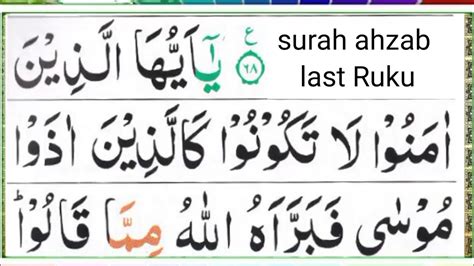 يٰۤاَيُّهَا الَّذِيْنَ ۶۸ ع surah ahzab
last Ruku
اٰمَنُوْا لَا تَكُوْنُوْا كَالَّذِيْنَ اٰذَوْا
مُوْسٰى فَبَرَّاَهُ اللّٰهُ مِمَّا قَالُوْا ؕ